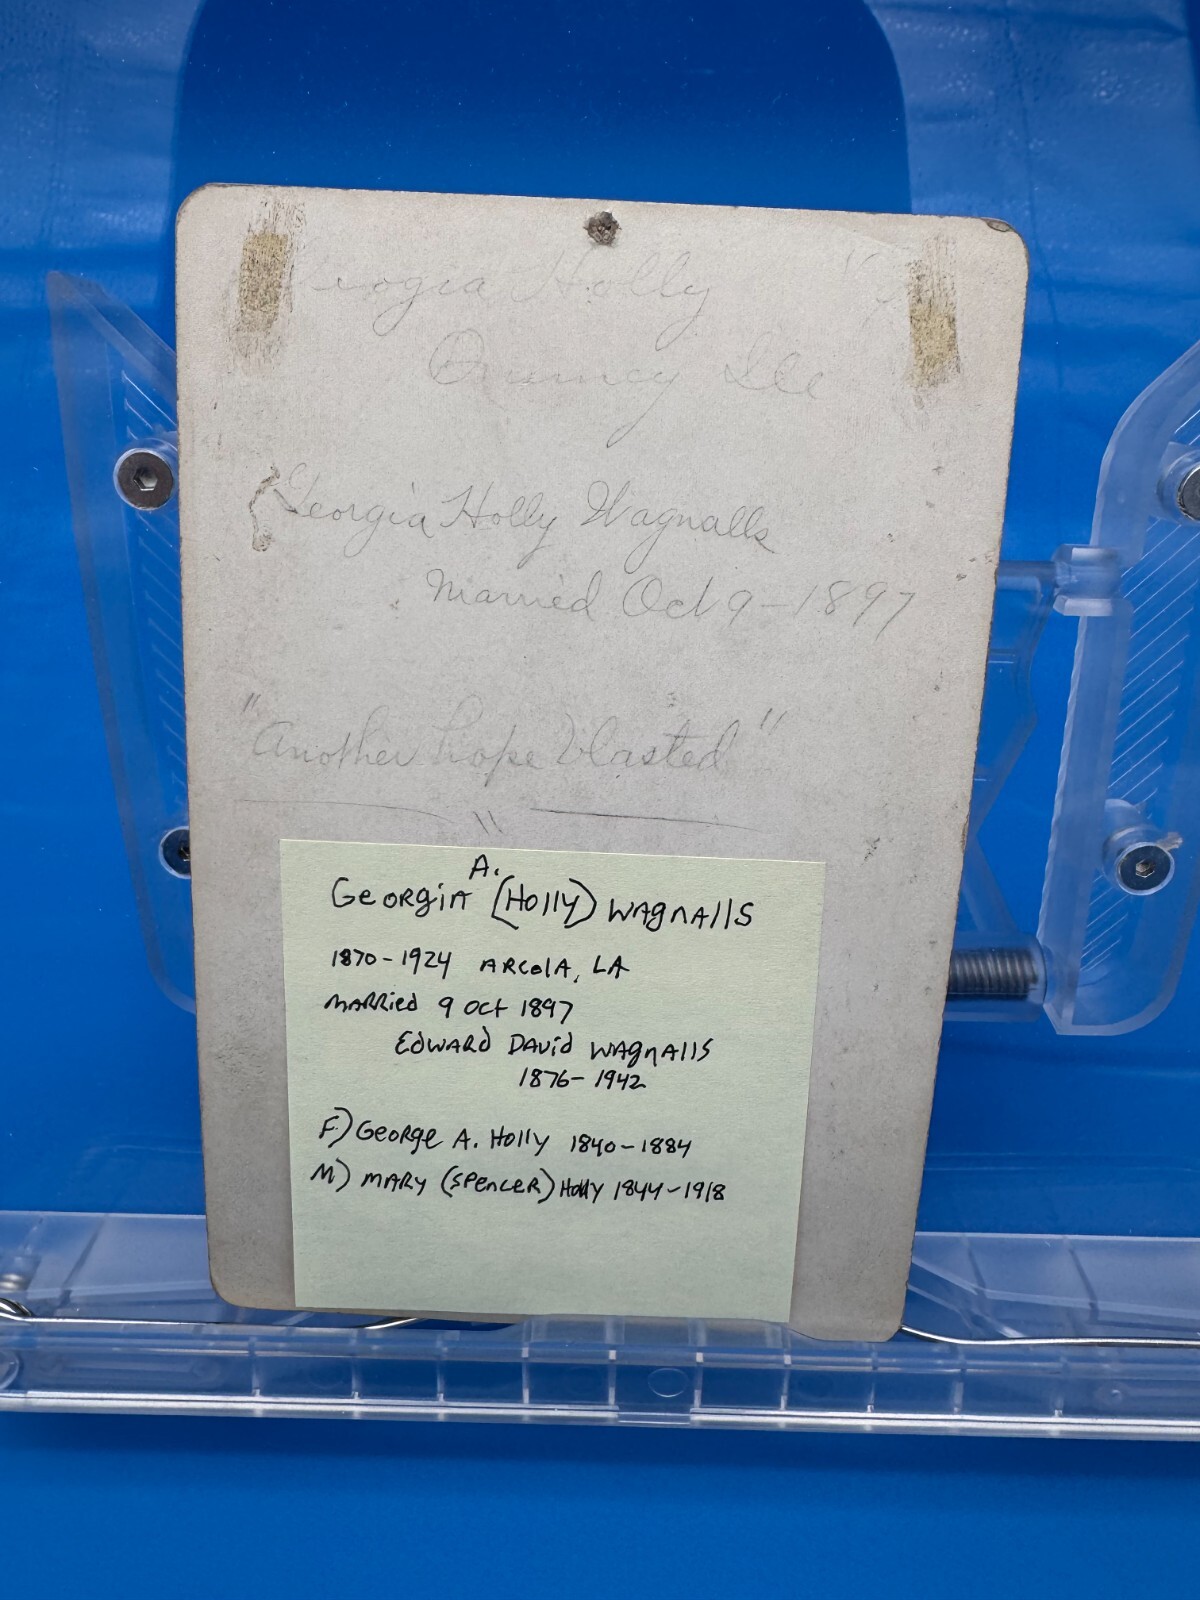 Georgia Holly
Quincy Ill
Georgia Holly Wagnalls
Married Oct 9-1897
"Another hope blasted"
A.
GEORGIA (HOLLY) WAGNALLS
1870-1924 ARCOLA, LA
MARRIED 9 OCT 1897
EDWARD DAVID WAGNALLS
1876-1942
F) GEORGE A. HOLLY 1840-1884
M) MARY (SPENCER) HOLLY 1844-1918